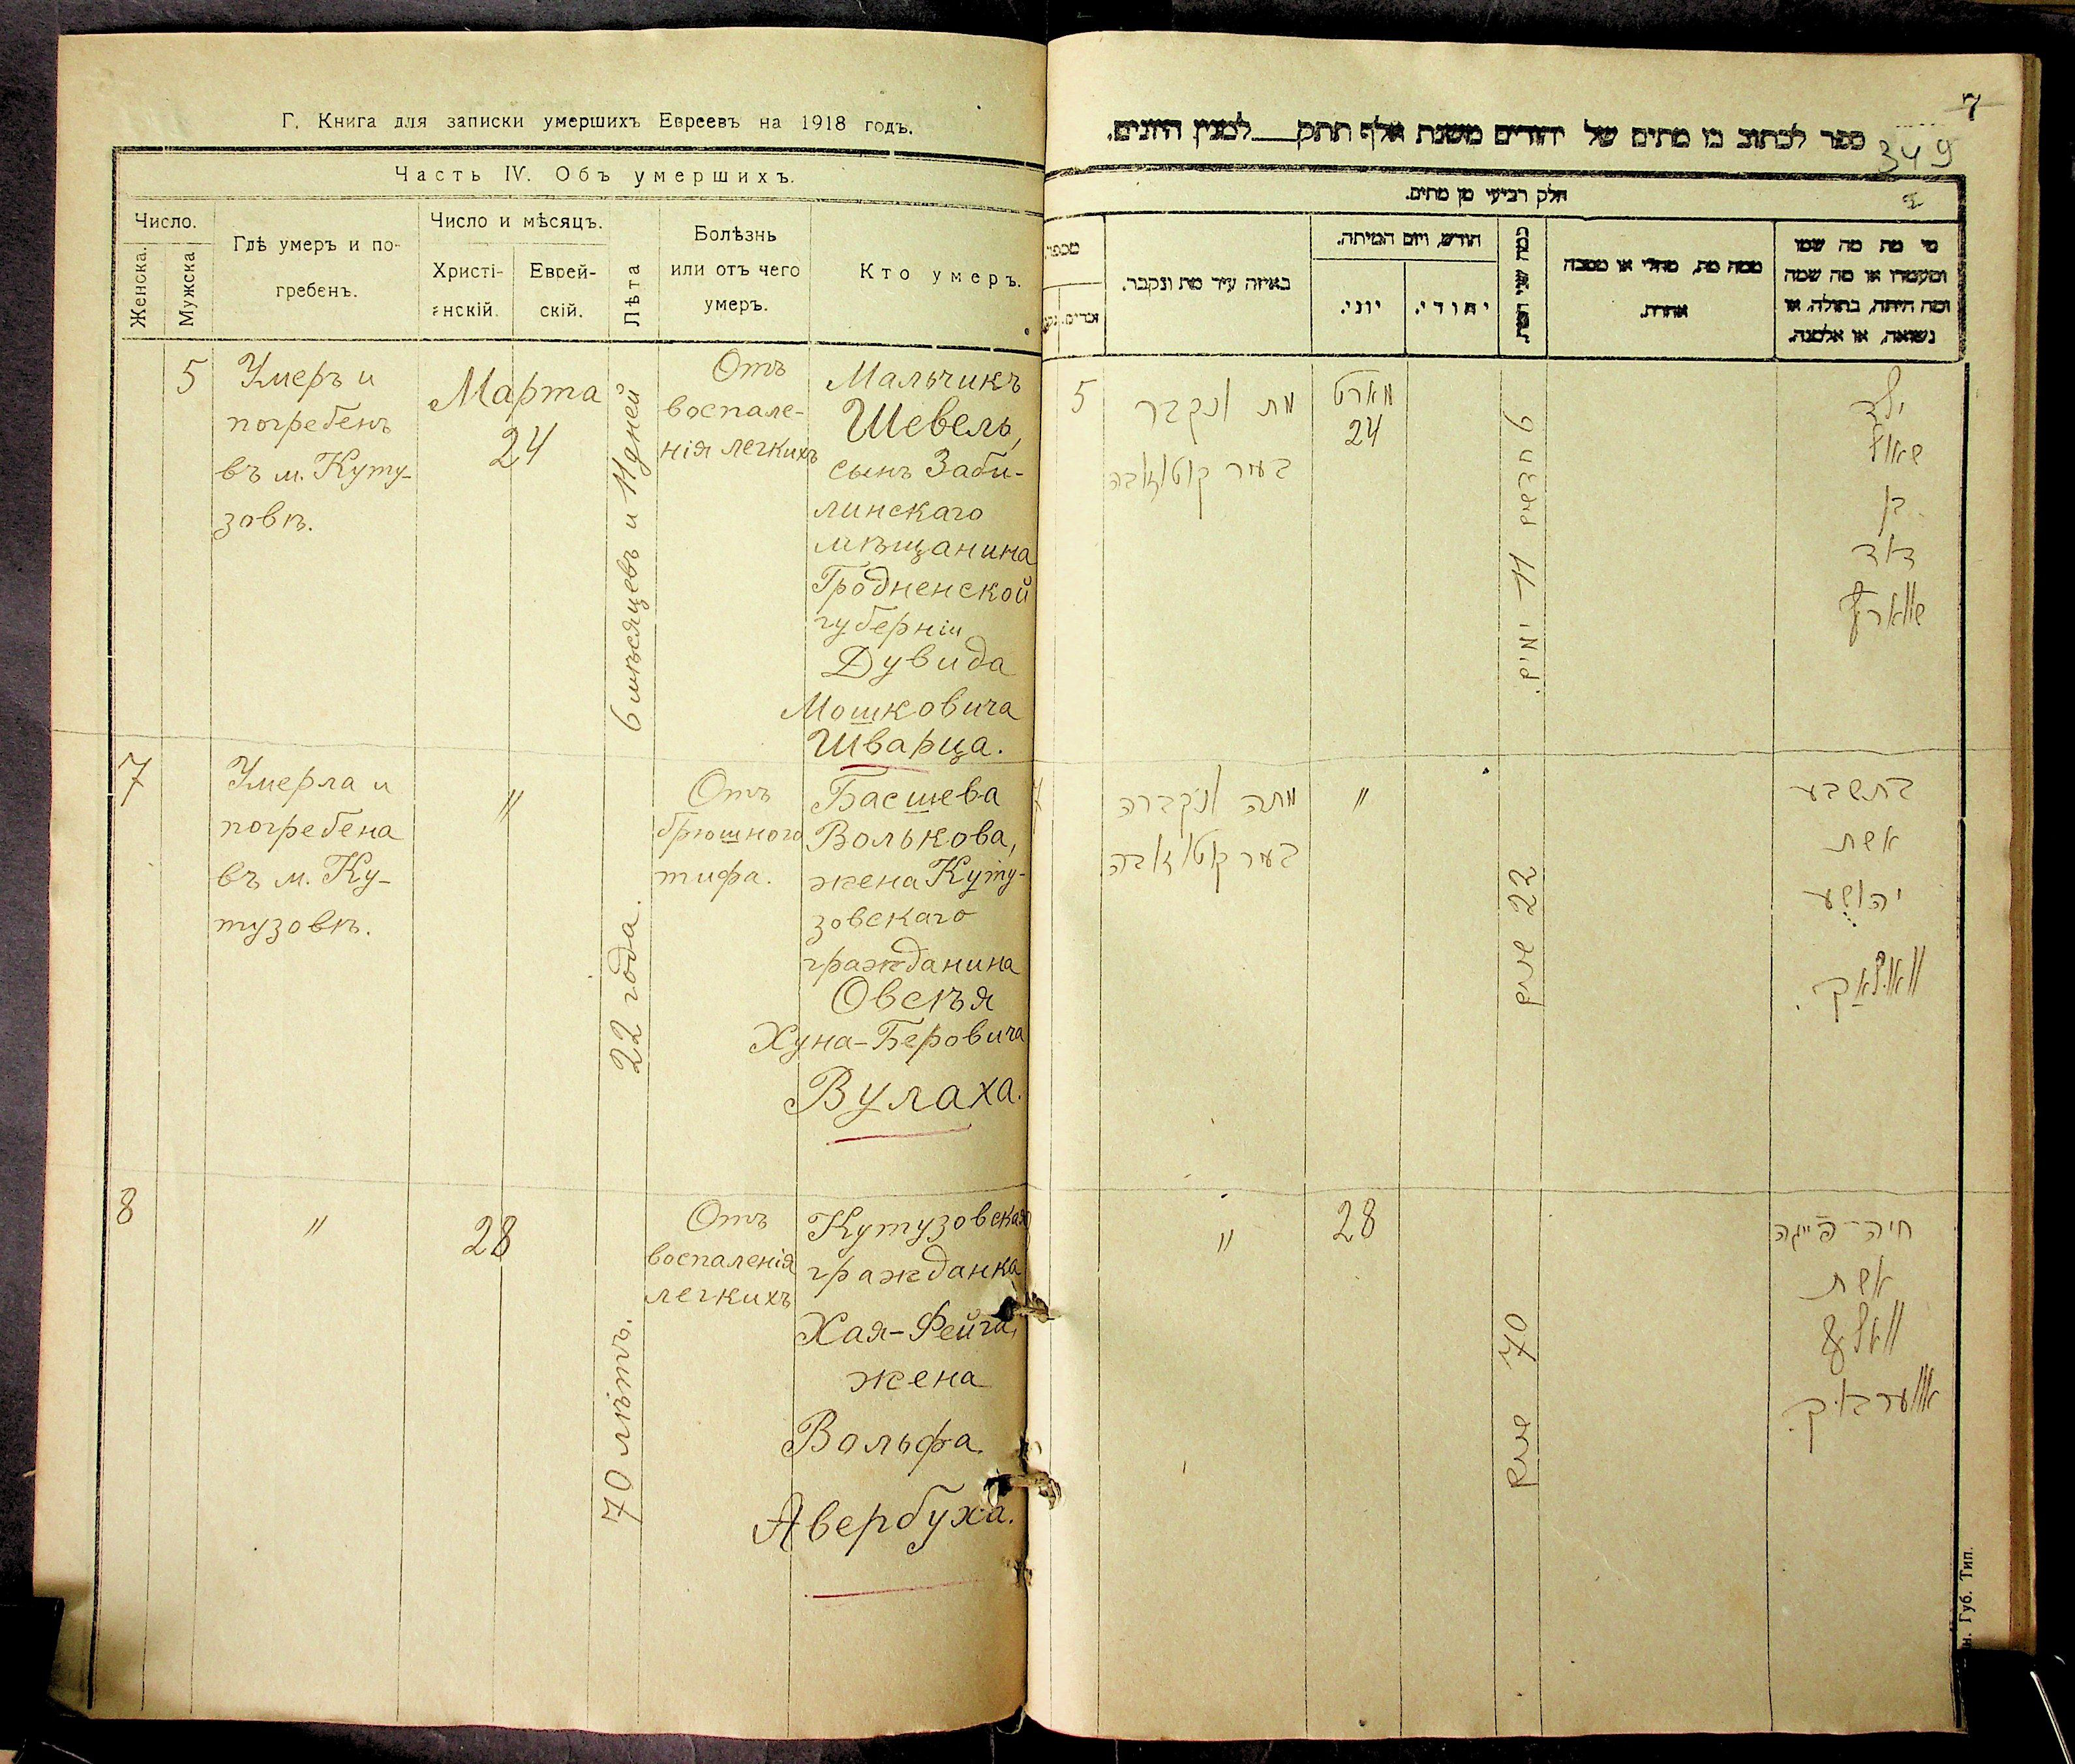 Г. Книга для записки умершихъ Евреевъ на 1918 годъ.
Часть IV. Объ умершихъ.
Число.
Женска.
Мужска
Гдѣ умеръ и по-
гребенъ.
Число и мѣсяцъ.
Христі-
анскій.
Еврей-
скій.
Лѣта
Болѣзнь
или отъ чего
умеръ.
Кто умеръ.
5
Умеръ и
погребенъ
въ м. Куту-
зовѣ.
Марта
24
6 мѣсяцевъ и 11 дней
Отъ
воспале-
нія легкихъ
Мальчикъ
Шевель,
сынъ Заби-
линскаго
мѣщанина
Гродненской
губерніи
Дувида
Мошковича
Шварца.
7
Умерла и
погребена
въ м. Ку-
тузовѣ.
"
22 года.
Отъ
брюшного
тифа.
Басшева
Волькова,
жена Куту-
зовскаго
гражданина
Овсѣя
Хуна-Беровича
Вулаха.
8
"
28
70 лѣтъ.
Отъ
воспаленія
легкихъ
Кутузовская
гражданка
Хая-Фейга,
жена
Вольфа
Авербуха.
7
349
ספר לכתוב בו מתים של יהודים משנת אלף תתק___למנין היונים.
חלק רביעי מן מתים.
מספר
זכרים.
באיזה עיר מת ונקבר.
חודש, ויום המיתה.
יוני.
יהודי.
כמה שני המת.
ממה מת, מחלי או מסבה
אחרת.
מי מת מה שמו
ומעמדו או מה שמה
ומה היתה, בתולה, או
נשואה, או אלמנה.
5
מת ונקבר
בעיר קוטוזאבה
מארט
24
6 חדשים 11 ימים.
ילד
שאול
בן
דוד
שווארץ
7
מתה ונקברה
בעיר קוטוזאבה
"
22 שנים
בתשבע
אשת
יהושע
וואולאך.
"
28
70 שנים
חיה-פייגה
אשת
וואלף
אווערבוך.
н. Губ. Тип.